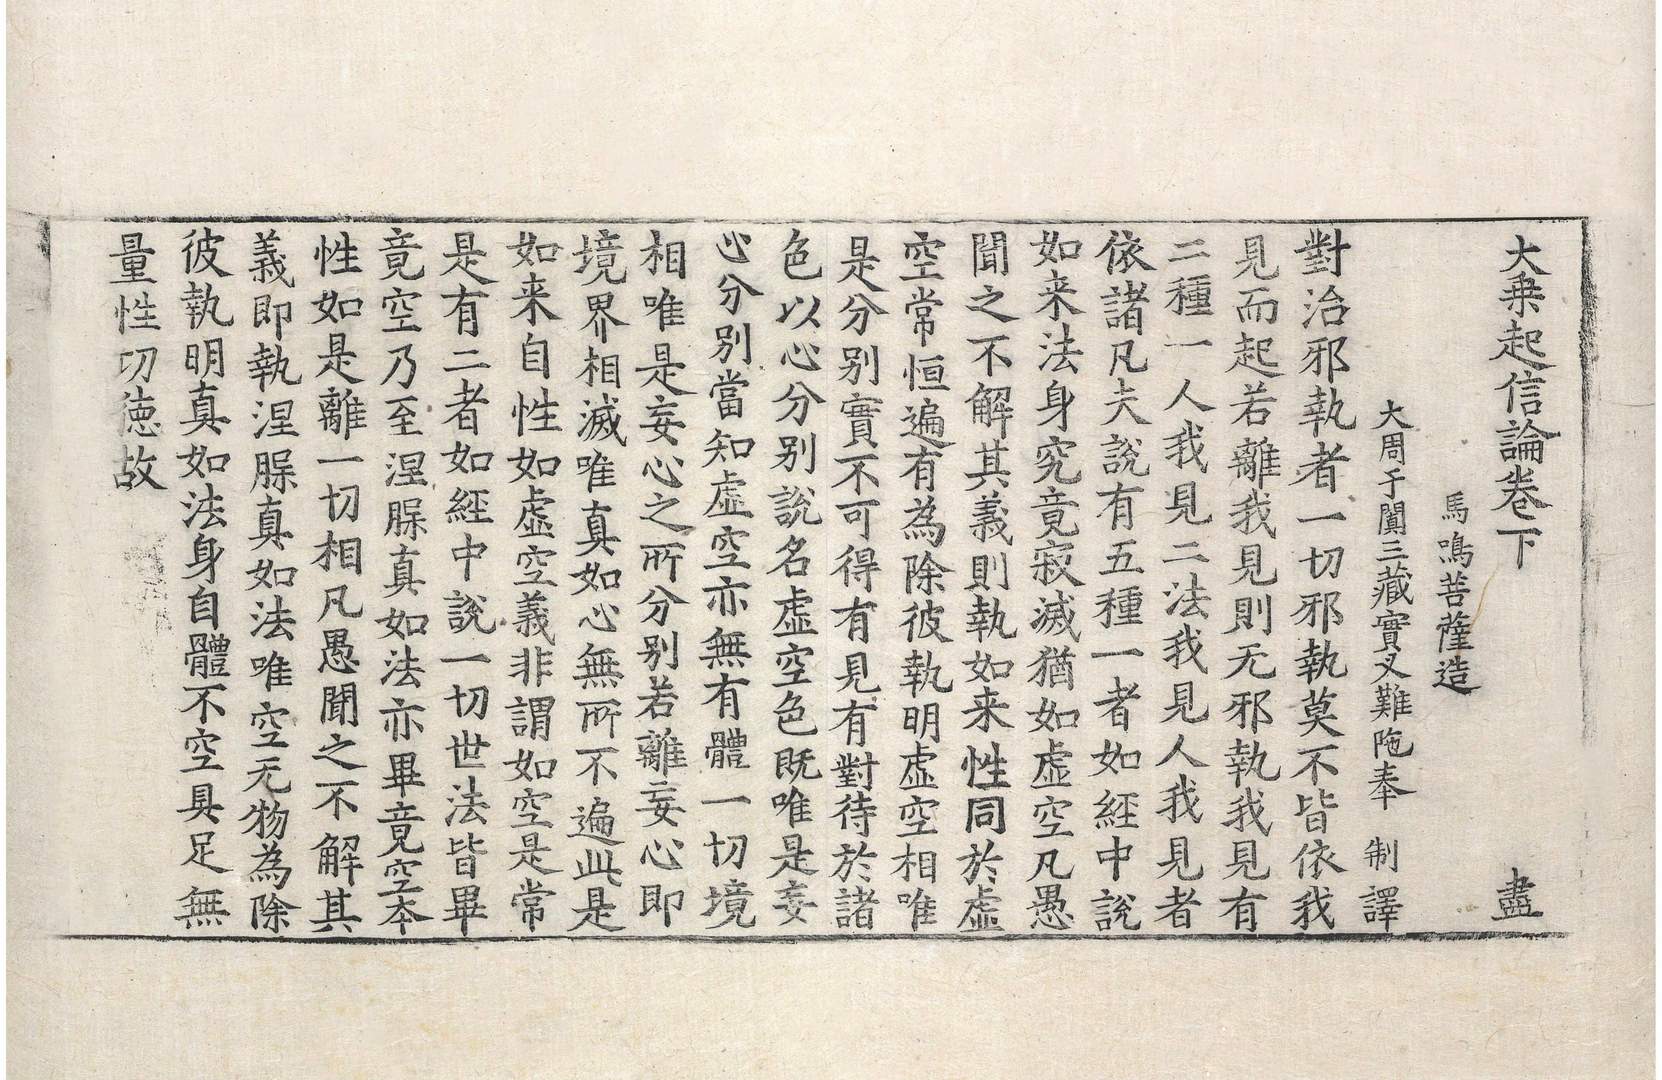 大乗起信論卷下 盡
馬鳴菩薩造
大周于闐三藏實叉難陁奉 制譯
對治邪執者一切邪執莫不皆依我
見而起若離我見則无邪執我見有
二種一人我見二法我見人我見者
依諸凡夫說有五種一者如經中說
如来法身究竟寂滅猶如虛空凡愚
聞之不解其義則執如来性同於虛
空常恒遍有為除彼執明虛空相唯
是分別實不可得有見有對待於諸
色以心分別說名虛空色既唯是妄
心分別當知虛空亦無有體一切境
相唯是妄心之所分別若離妄心即
境界相滅唯真如心無所不遍此是
如来自性如虛空義非謂如空是常
是有二者如經中說一切世法皆畢
竟空乃至涅脲真如法亦畢竟空本
性如是離一切相凡愚聞之不解其
義即執涅脲真如法唯空无物為除
彼執明真如法身自體不空具足無
量性㓛徳故